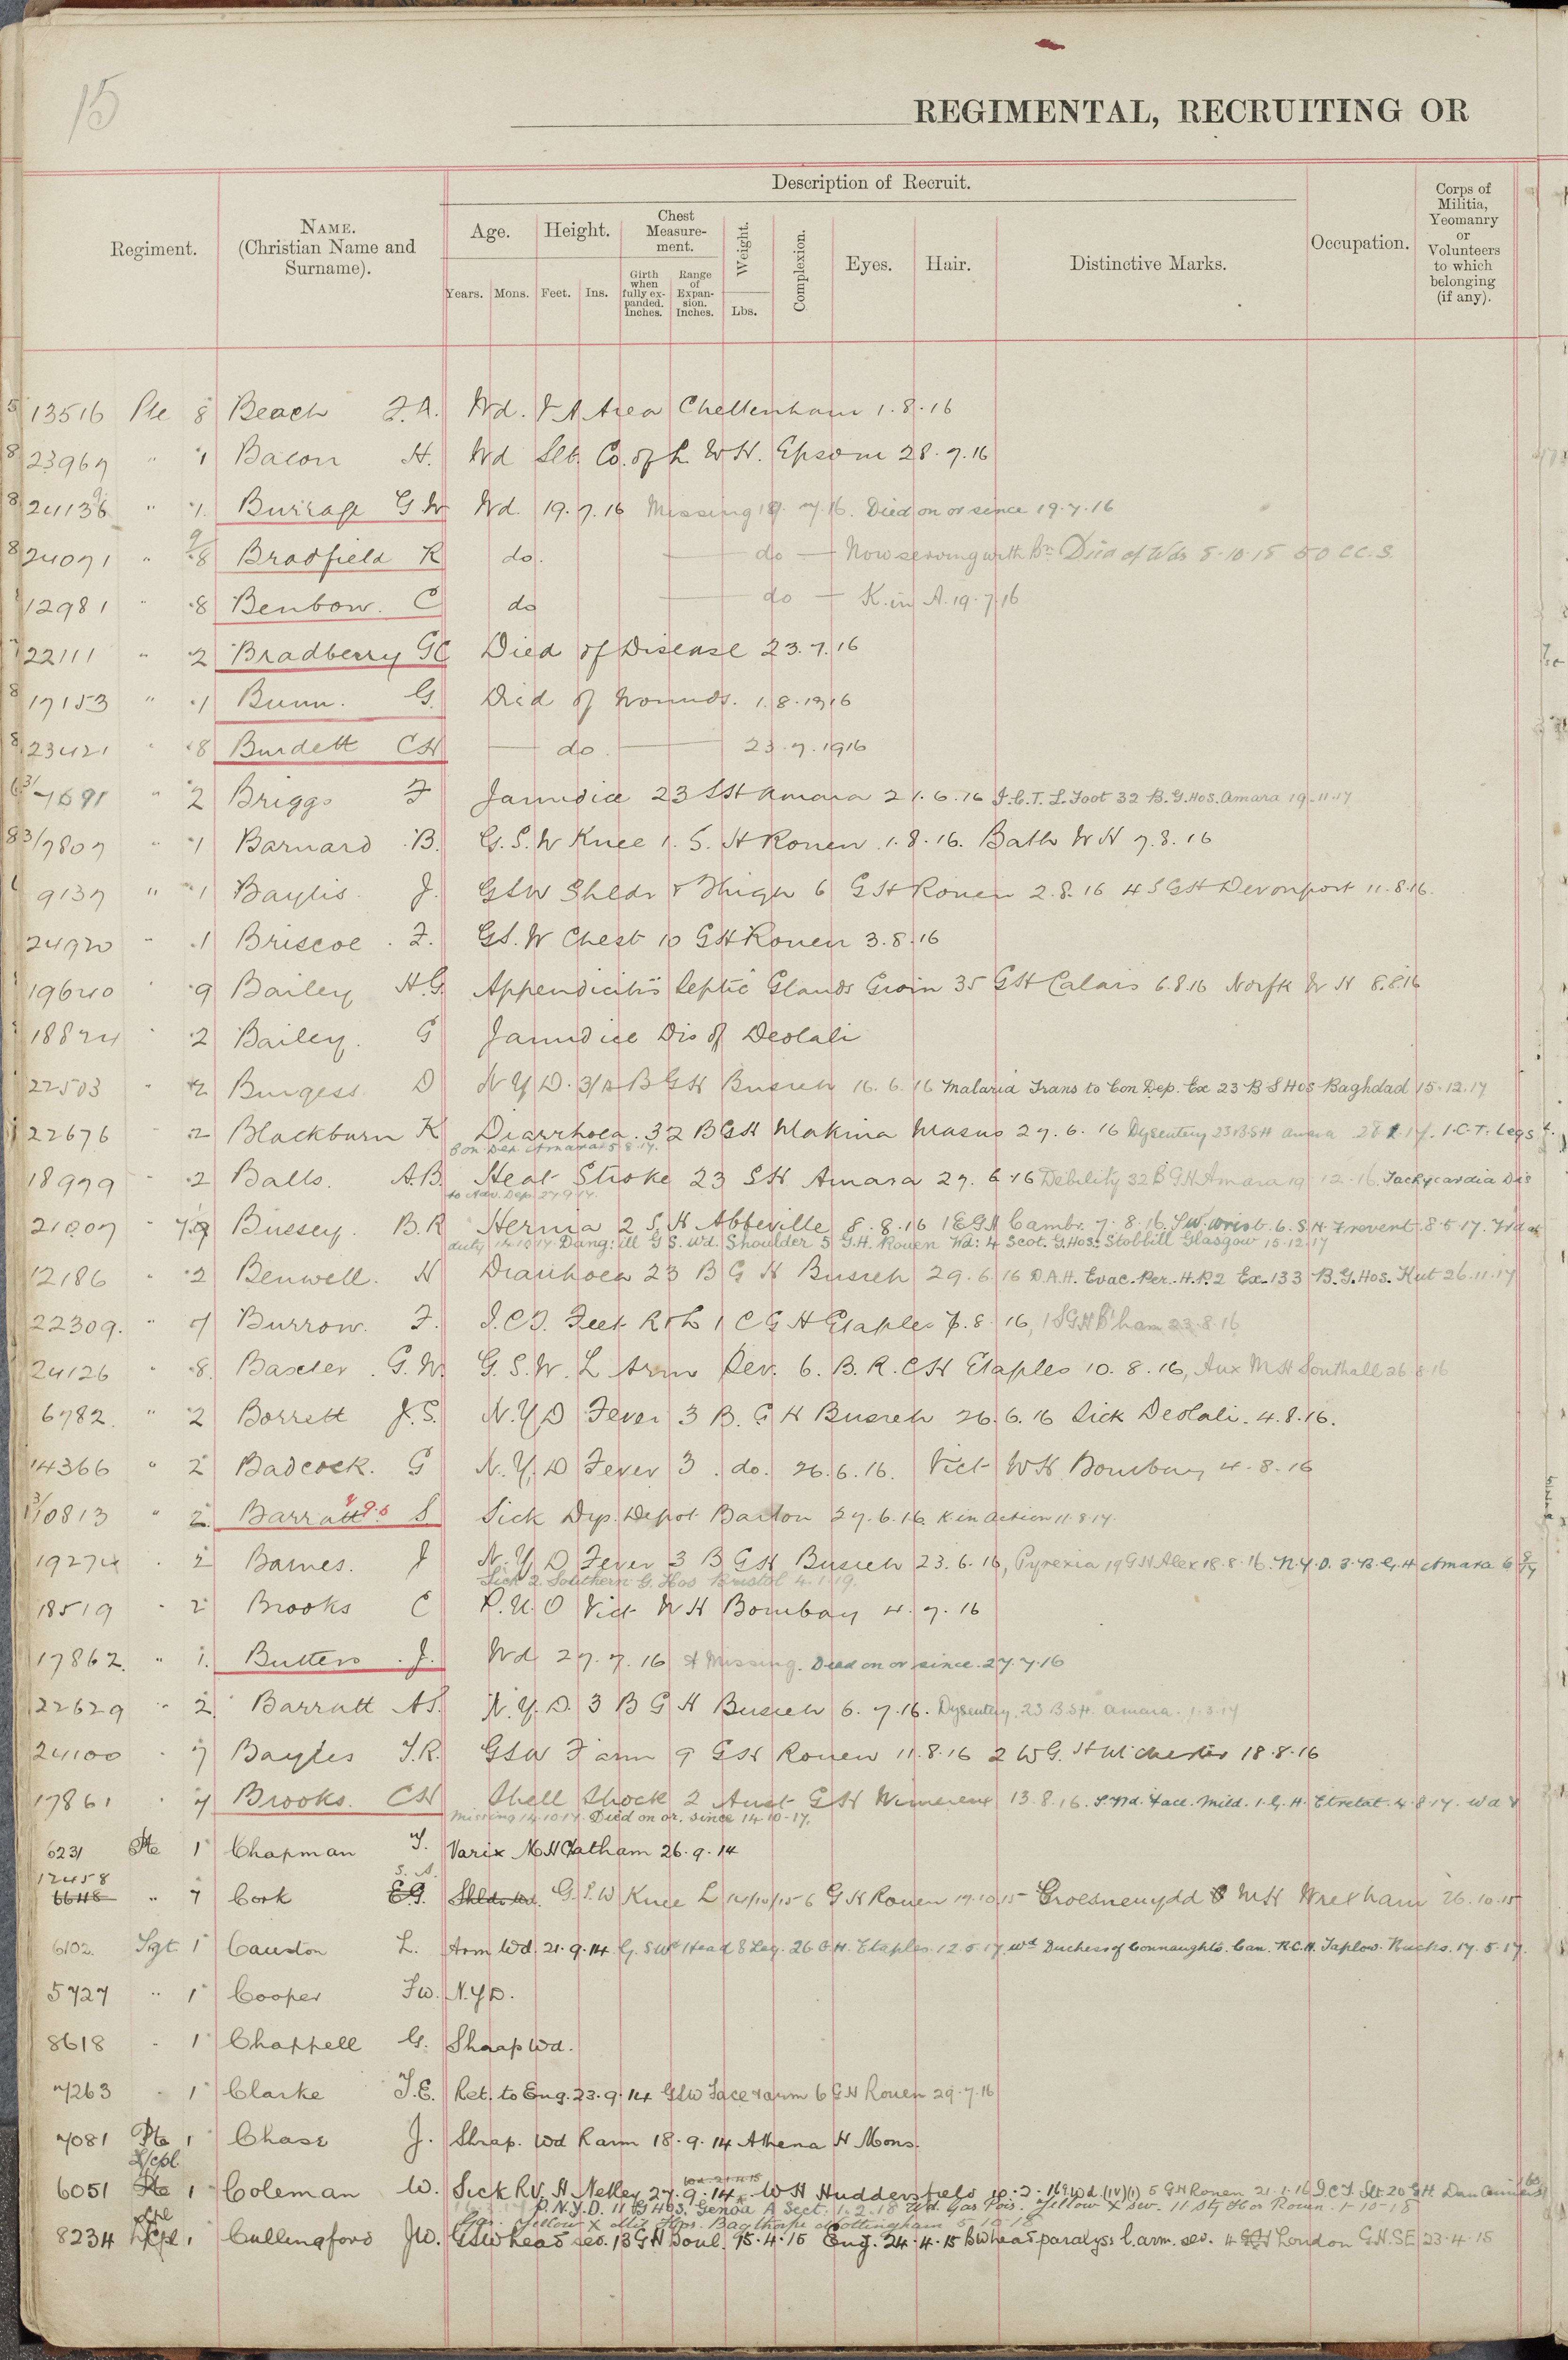 15
REGIMENTAL, RECRUITING OR
Regiment.
NAME.
(Christian Name and
Surname).
Description of Recruit.
Age.
Years.
Mons.
Height.
Feet.
Ins.
Chest
Measure-
ment.
Girth
when
fully ex-
panded.
Inches.
Range
of
Expan-
sion.
Inches.
Weight.
Lbs.
Complexion.
Eyes.
Hair.
Distinctive Marks.
Occupation.
Corps of
Militia,
Yeomanry
or
Volunteers
to which
belonging
(if any).
13516 Pte 8 Beach F.A. Wd. Area Cheltenham 1.8.16
23967 " 1 Bacon H. Wd Slt. Co. of L. W.H. Epsom 28.7.16
24136 " 1 Burrage G W Wd. 19.7.16 Missing 19.7.16. Died on or since 19.7.16
24071 " 8 Bradfield R do. — do — Now serving with Bn Died of Wds 5.10.18 50 C.C.S.
12981 " 8 Benbow. C do — do — K. in A. 19.7.16
22111 " 2 Bradberry GC Died of Disease 23.7.16
17153 " 1 Bunn. G. Died of Wounds. 1.8.1916
23421 " 8 Burdett CH — do. — 23.7.1916
3/7691 " 2 Briggs F Jaundice 23 SH Amara 21.6.16 I.C.T. L. Foot 32 B.G.Hos. Amara 19.11.17
3/7807 " 1 Barnard B. G.S.W Knee 1. S. H Rouen 1.8.16. Bath W H 7.8.16
9137 " 1 Baylis J. GSW Shldr & Thigh 6 GH Rouen 2.8.16 4 SGH Devonport 11.8.16.
24920 " 1 Briscoe F. G.S.W Chest 10 GH Rouen 3.8.16
19640 " 9 Bailey H.G. Appendicitis Septic Glands Groin 35 GH Calais 6.8.16 Norfk W H 8.8.16
18824 " 2 Bailey. G Jaundice Dis of Deolali
22503 " 2 Burgess D N Y D. 3/A B G H Busreh 16.6.16 Malaria Trans to Con Dep. Ex 23 B S Hos Baghdad 15.12.17
22676 " 2 Blackburn K Diarrhoea. 32 BGH Makina Masus 27.6.16 Dysentery 23 BSH Amara 28.1.17. I.C.T. Legs
Con Dep. Amara 5.8.17.
18979 " 2 Balls. A.B. Heat Stroke 23 SH Amara 27.6.16 Debility 32 B G H Amara 12.16. Tachycardia Dis
to Adv. Dep. 27.9.17.
21007 " 7 Bussey. B.R Hernia 2 S.H Abbeville 8.8.16 1 EGH Cambr. 7.8.16. SW. wrist. 6. S.H. Frevent 8.5.17.
duty 14.10.17. Dang: ill G S. Wd. Shoulder 5 G.H. Rouen Wd: 4 Scot. G.Hos: Stobhill Glasgow 15.12.17
12186 " 2 Benwell. H Diarrhoea 23 B G H Busreh 29.6.16 D.A.H. Evac. Per. H.P.2 Ex. 133 B.G.Hos. Kut 26.11.17
22309. " 7 Burrow. F. I.C.T. Feet R & L 1 C G H Etaples 7.8.16, 1 SGH B'ham 23.8.16
24126 " 8. Baxter G.W. G.S.W. L Arm Sev. 6. B.R.C H Etaples 10.8.16, Aux M H Southall 26.8.16
6782. " 2 Borrett J.S. N.Y.D Fever 3 B. G H Busreh 26.6.16 Sick Deolali. 4.8.16.
14366 " 2 Badcock. G N.Y.D Fever 3. do. 26.6.16. Vict W H Bombay 4.8.16
3/10813 " 2. Barratt S Sick Dep. Depot Barton 27.6.16. K in action 11.8.17.
19274 " 2 Barnes. J N.Y.D Fever 3 B G H Busreh 23.6.16, Pyrexia 19 G H Alex 18.8.16. N.Y.D. 3. B.G.H Amara
Sick 2 Southern G. Hos Bristol 4.1.19.
18519 " 2 Brooks C P.U.O Vict W H Bombay 4.7.16
17862. " 1. Butters J. Wd 27.7.16 & Missing. Dead on or since. 27.7.16
22629 " 2. Barratt AS. N.Y.D. 3 B G H Busreh 6.7.16. Dysentery. 23 B.S.H. Amara. 1.3.17
24100 " 7 Bayles J.R. GSW F arm 9 GH Rouen 11.8.16 2 W G. H Mchester 18.8.16
17861 " 7 Brooks. CH Shell Shock 2 Aust GH Wimereux 13.8.16. S. Wd. Face. Mild. 1. G. H. Etretat. 4.8.17. Wd &
Missing 14.10.17. Died on or. since 14-10-17.
6231 Pte 1 Chapman T. Varix M H Chatham 26.9.14
12458
6648 " 7 Cork S. A. E.G. Shldr Wd. G.S.W Knee L 14/10/15 6 GH Rouen 17.10.15 Croesnewydd MH Wrexham 26.10.15
6102. Sgt. 1 Causton L. Arm Wd. 21.9.14 G.S.Wd Head & Leg. 26 G.H. Etaples. 12.5.17. Wd Duchess of Connaughts. Can. R.C.H. Taplow. Bucks. 17.5.17.
5727 " 1 Cooper F.W. N.Y.D.
8618 " 1 Chappell G. Shrap Wd.
7263 " 1 Clarke T.E. Ret. to Eng. 23.9.14 GSW Face & arm 6 G H Rouen 29.7.16
7081 Pte 1 Chase J. Shrap. Wd R arm 18.9.14 Athena H Mons.
L/Cpl
6051 Pte 1 Coleman W. Sick R.V. H Netley 27.9.14. W H Huddersfield 10.2.16. Wd. (IV)(1) 5 GH Rouen 21.1.16 I.C.T. Slt 20 GH
P.N.Y.D. 11 G Hos. Genoa A Sect. 1.2.18 Wd. Gas Pois. Yellow X Sev. 11 Sty Hos Rouen. 1-10-18
Gas. Yellow X Mil Hos. Bagthorpe Nottingham 5-10-18
8234 L/Cpl 1 Cullingford J.W. GSW head sev. 13 GH Boul. 15.4.15 Eng. 24.4.15 BW head paralysis l. arm. sev. 4 London G.H. SE 23.4.15